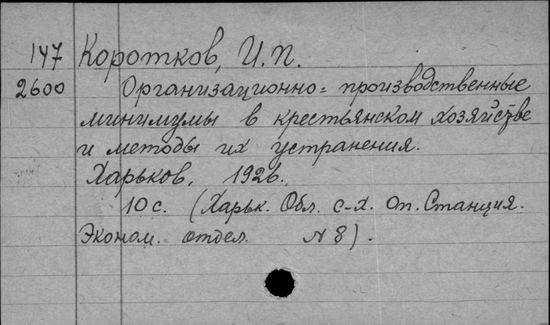 147 Коротков, И.П.
2600 Организационно-производственные
минимумы в крестьянском хозяйстве
и методы их устранения.
Харьков, 1926.
10 с. (Харьк. Обл. с-х. Оп. Станция.
Эконом. отдел. N 8).